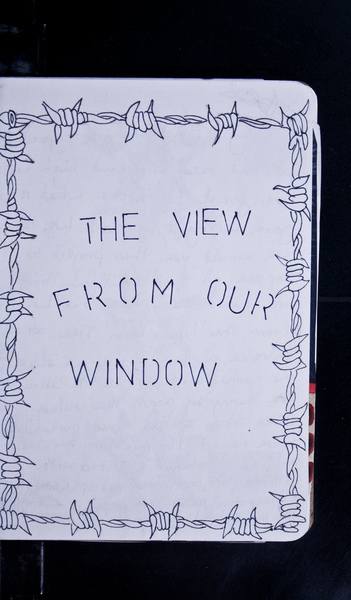 THE VIEW
FROM OUR
WINDOW